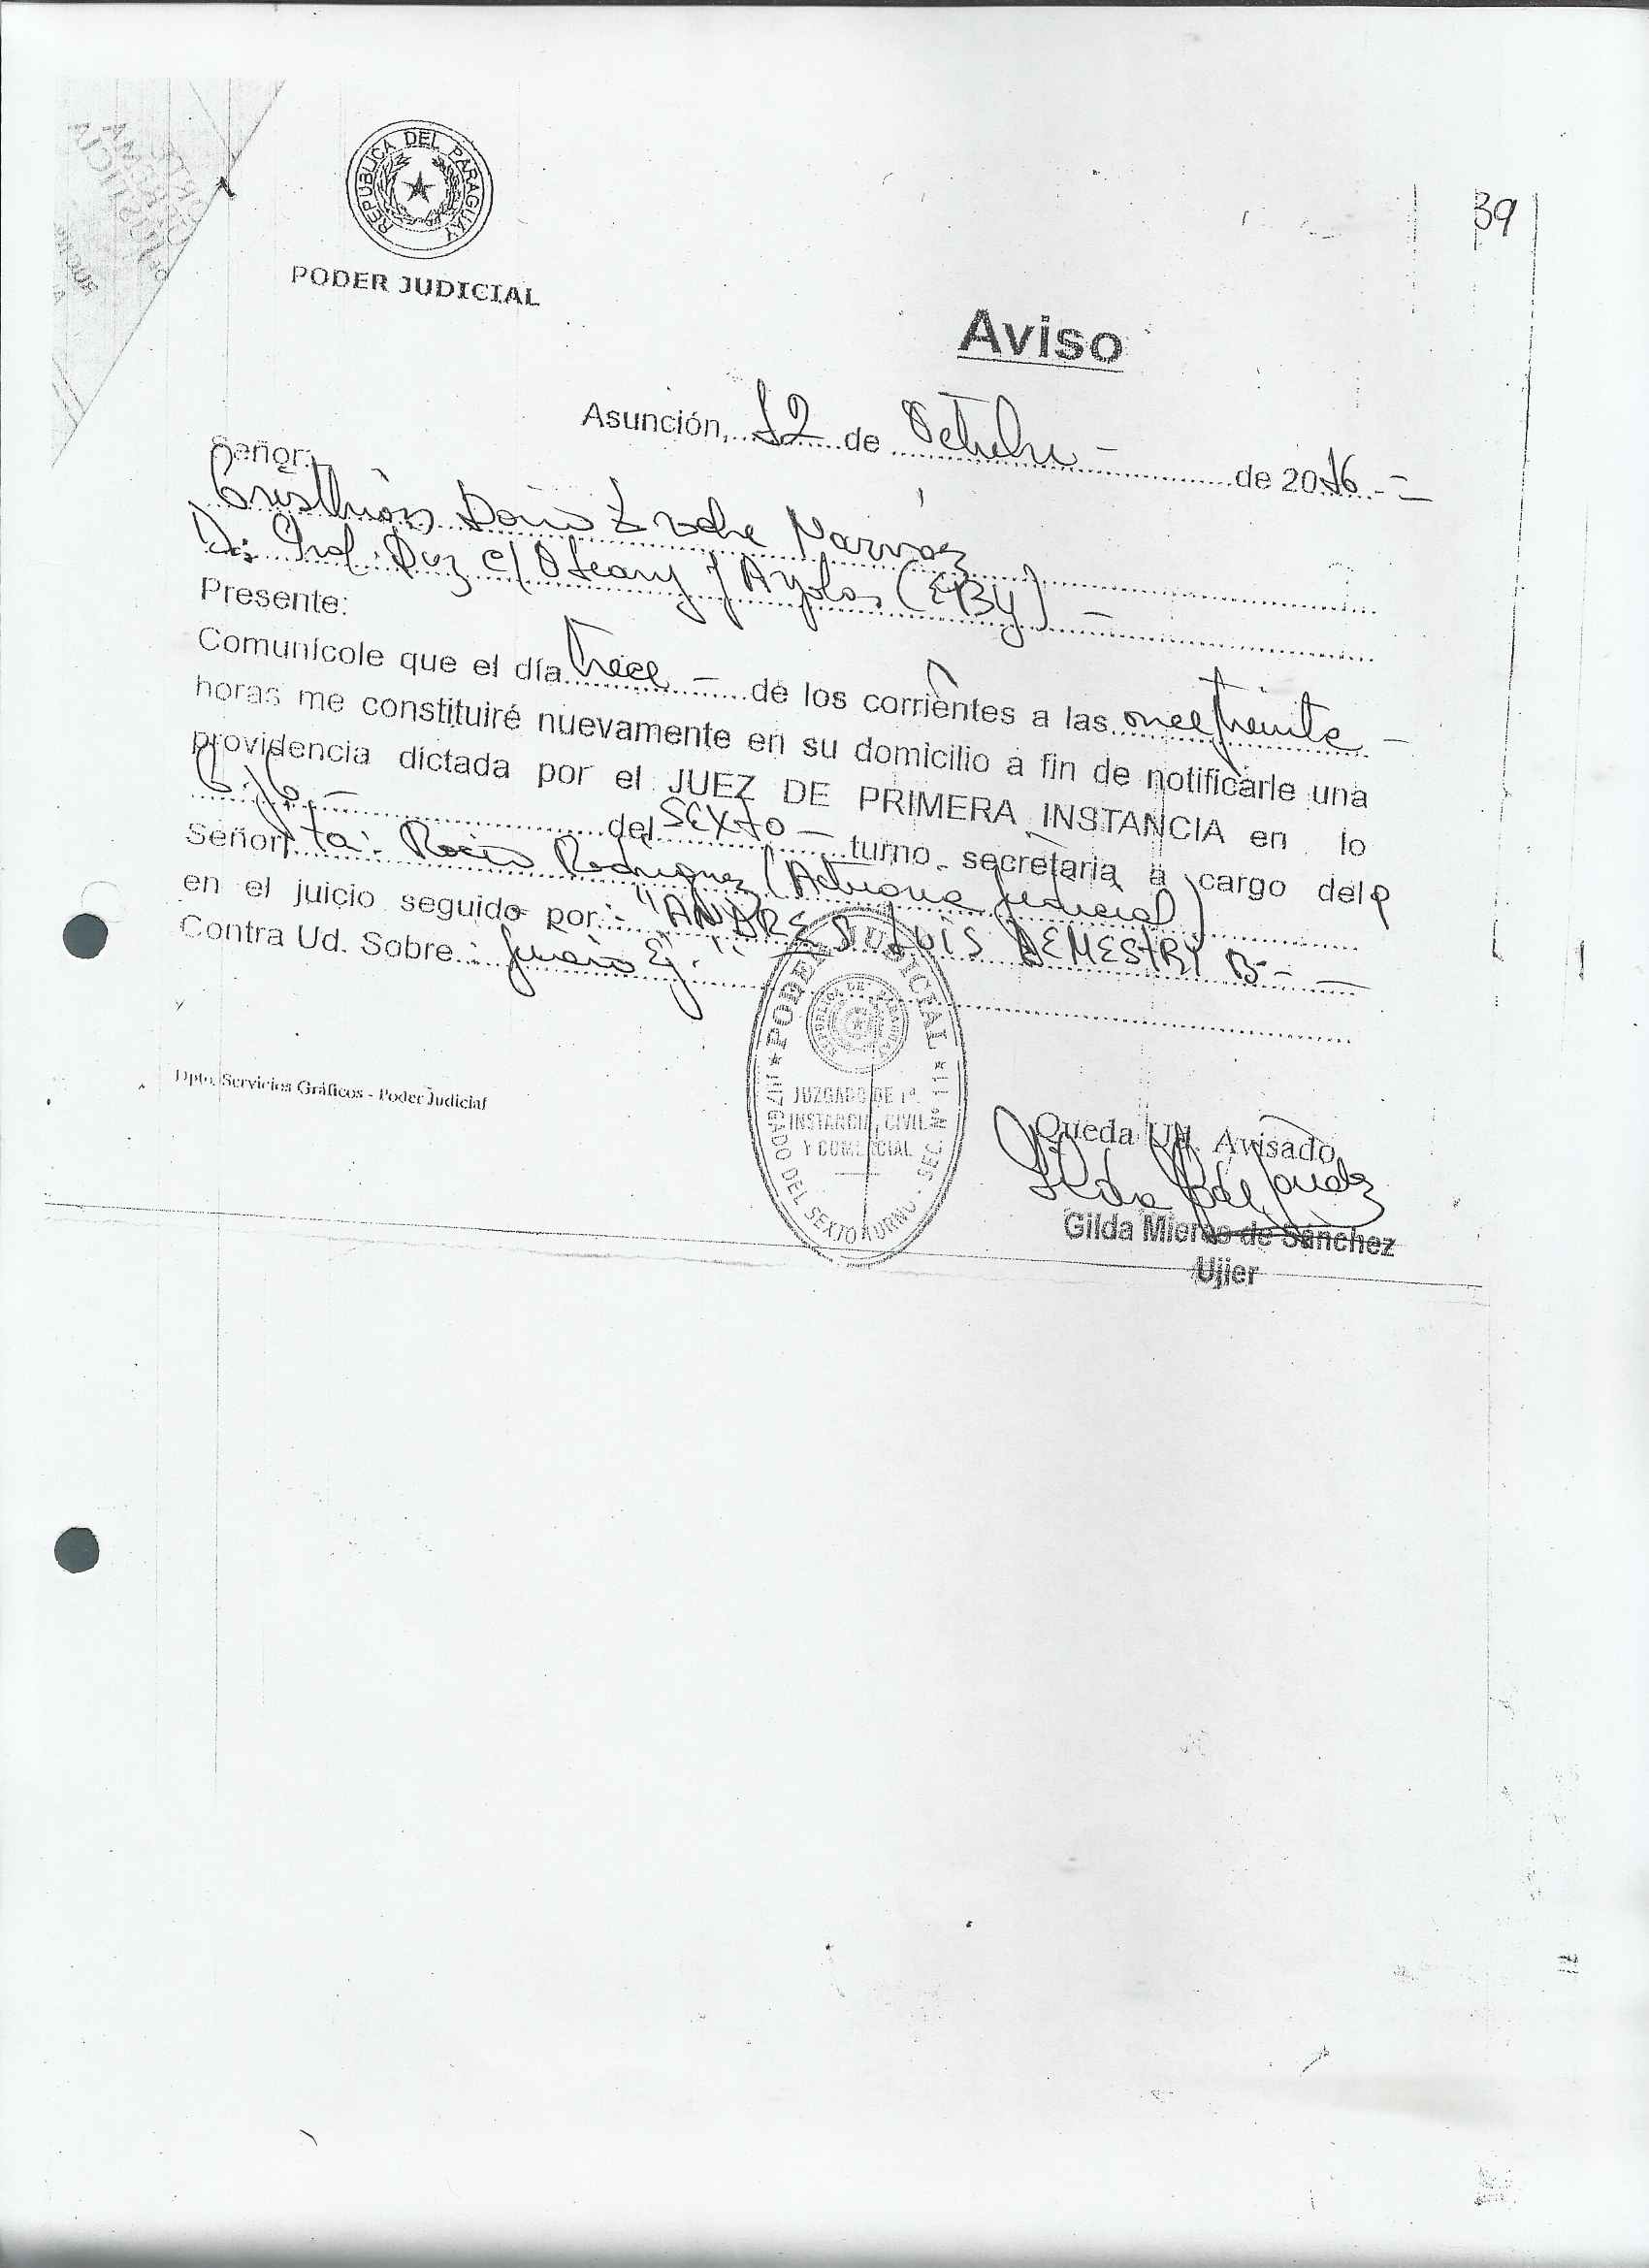 REPUBLICA DEL PARAGUAY
PODER JUDICIAL
39
Aviso
Asunción, 12 de Octubre - de 2016.-
Señor:
Cristhian Narváez
D: Prof. c/ Oleary y Ayolas (EBY) -
Presente:
Comunícole que el día trece - de los corrientes a las once treinta -
horas me constituiré nuevamente en su domicilio a fin de notificarle una
providencia dictada por el JUEZ DE PRIMERA INSTANCIA en lo
C. y C. - del SEXTO - turno, secretaria a cargo del
Señor ta: Rocío Rodríguez (Actuaria Judicial)
en el juicio seguido por: "ANDRES LUIS DEMESTRI B.-
Contra Ud. Sobre: Juicio Ej."
PODER JUDICIAL
JUZGADO DE 1ª
INSTANCIA CIVIL
Y COMERCIAL
JUZGADO DEL SEXTO TURNO - SEC. Nº 11
Dpto. Servicios Gráficos - Poder Judicial
Queda Ud. Avisado
Gilda Mieres de Sánchez
Ujier